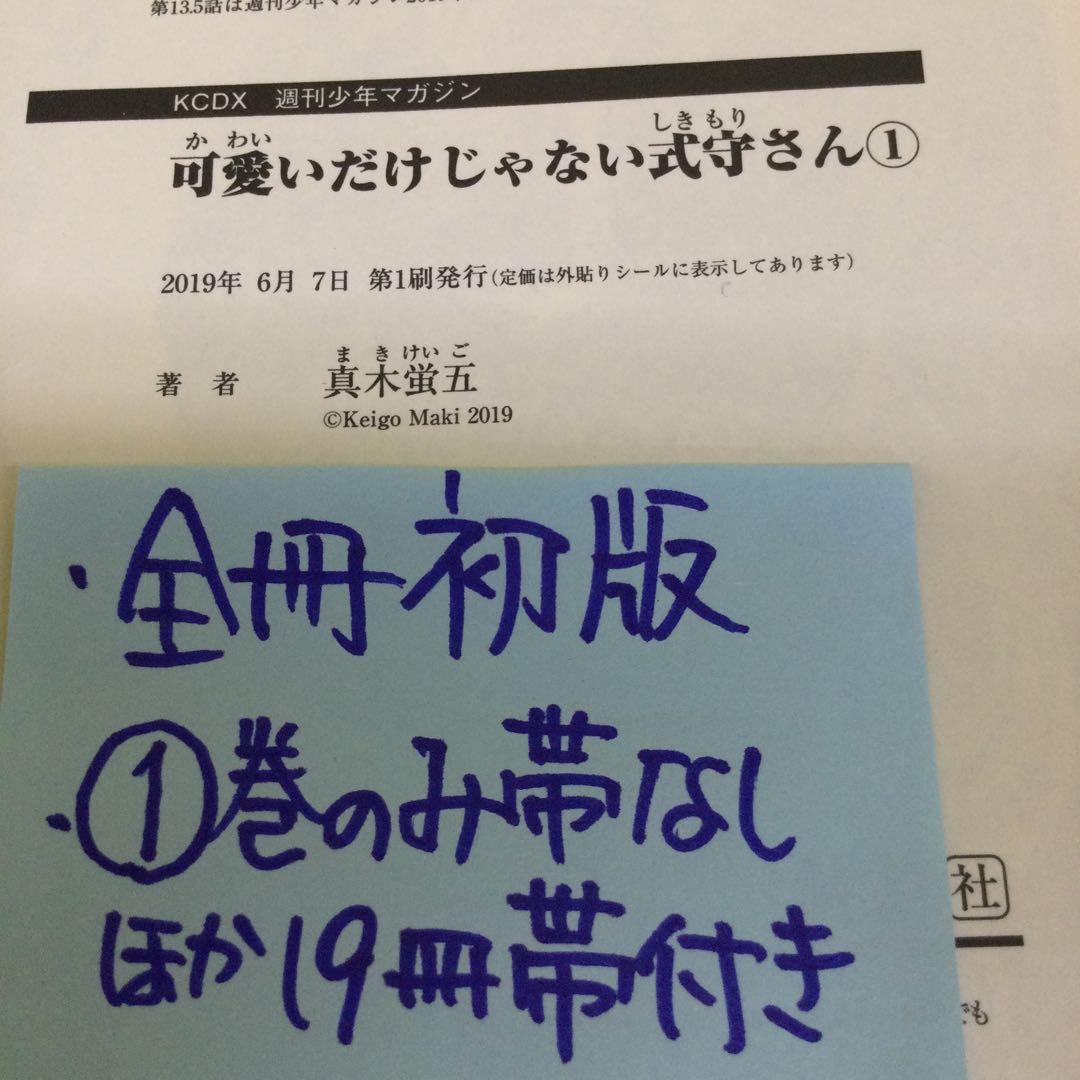 第13.5話は週刊少年マガジン
KCDX 週刊少年マガジン
かわい しきもり
可愛いだけじゃない式守さん①
2019年 6月 7日 第1刷発行(定価は外貼りシールに表示してあります)
まきけいご
著者 真木蛍五
©Keigo Maki 2019
・全冊初版
・①巻のみ帯なし
ほか19冊帯付き
社
でも